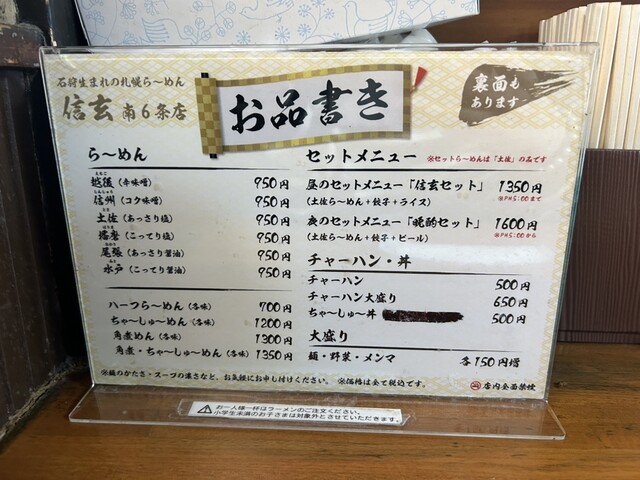 石狩生まれの札幌ら〜めん
信玄 南6条店
お品書き
裏面も
あります
ら〜めん
越後（辛味噌） 950円
信州（コク味噌） 950円
土佐（あっさり塩） 950円
播磨（こってり塩） 950円
尾張（あっさり醤油） 950円
水戸（こってり醤油） 950円
ハーフら〜めん（各味） 700円
ちゃ〜しゅ〜めん（各味） 1200円
角煮めん（各味） 1300円
角煮・ちゃ〜しゅ〜めん（各味） 1350円
セットメニュー ※セットら〜めんは「土佐」のみです
昼のセットメニュー「信玄セット」 1350円
（土佐ら〜めん＋餃子＋ライス） ※PM5:00まで
夜のセットメニュー「晩酌セット」 1600円
（土佐ら〜めん＋餃子＋ビール） ※PM5:00から
チャーハン・丼
チャーハン 500円
チャーハン大盛り 650円
ちゃ〜しゅ〜丼 500円
大盛り
麺・野菜・メンマ 各150円増
※麺のかたさ・スープの濃さなど、お気軽にお申し付けください。 ※価格は全て税込です。
店内全面禁煙
お一人様一杯はラーメンのご注文ください。
小学生未満のお子さまは対象外とさせていただきます。